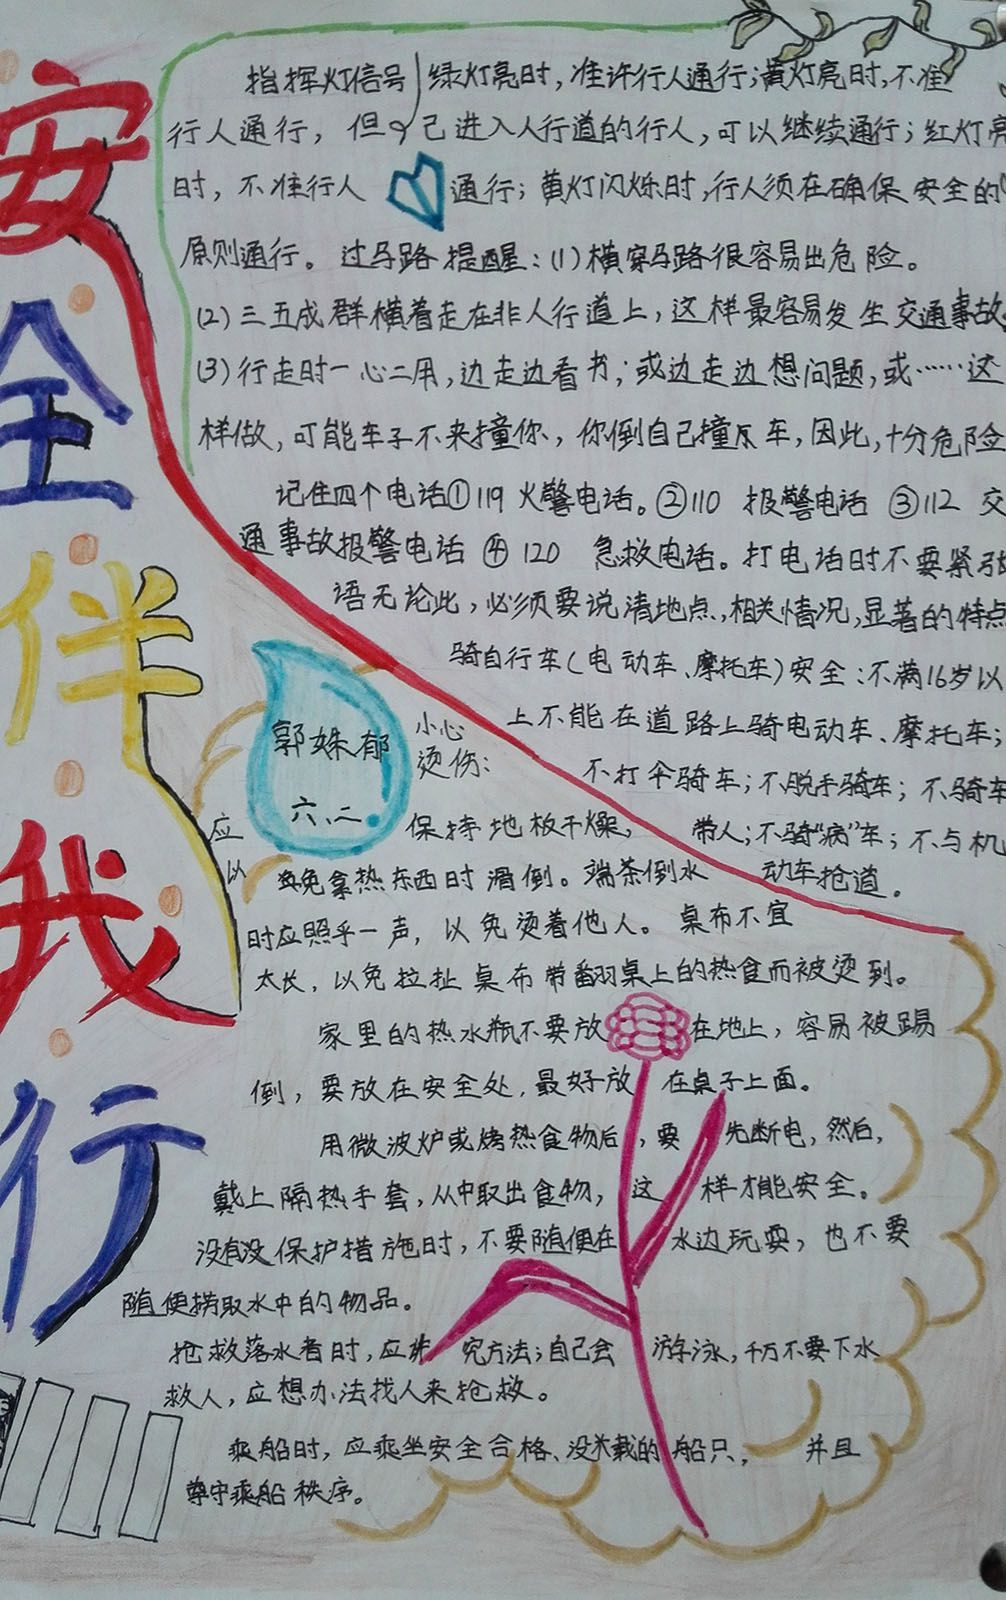 安全伴我行
指挥灯信号 绿灯亮时，准许行人通行；黄灯亮时，不准
行人通行，但 已进入人行道的行人，可以继续通行；红灯亮
时，不准行人 通行；黄灯闪烁时，行人须在确保安全的
原则通行。过马路提醒：(1)横穿马路很容易出危险。
(2)三五成群横着走在非人行道上，这样最容易发生交通事故。
(3)行走时一心二用，边走边看书；或边走边想问题，或……这
样做，可能车子不来撞你，你倒自己撞 车，因此，十分危险
记住四个电话①119 火警电话。②110 报警电话 ③112 交
通事故报警电话 ④120 急救电话。打电话时不要紧张
语无论此，必须要说清地点，相关情况，显著的特点
骑自行车(电动车、摩托车)安全：不满16岁以
上不能在道路上骑电动车、摩托车；
不打伞骑车；不脱手骑车；不骑车
带人；不骑“病”车；不与机
动车抢道。
郭姝郁
六、二
小心
烫伤：
应 保持地板干燥，
以 免拿热东西时滑倒。端茶倒水
时应照乎一声，以免烫着他人。桌布不宜
太长，以免拉扯桌布带翻桌上的热食而被烫到。
家里的热水瓶不要放 在地上，容易被踢
倒，要放在安全处，最好放 在桌子上面。
用微波炉或烤热食物后，要 先断电，然后，
戴上隔热手套，从中取出食物，这 样才能安全。
没有没保护措施时，不要随便在 水边玩耍，也不要
随便捞取水中的物品。
抢救落水者时，应 究方法；自己会 游泳，千万不要下水
救人，应想办法找人来抢救。
乘船时，应乘坐安全合格、没 载的船只， 并且
尊守乘船秩序。